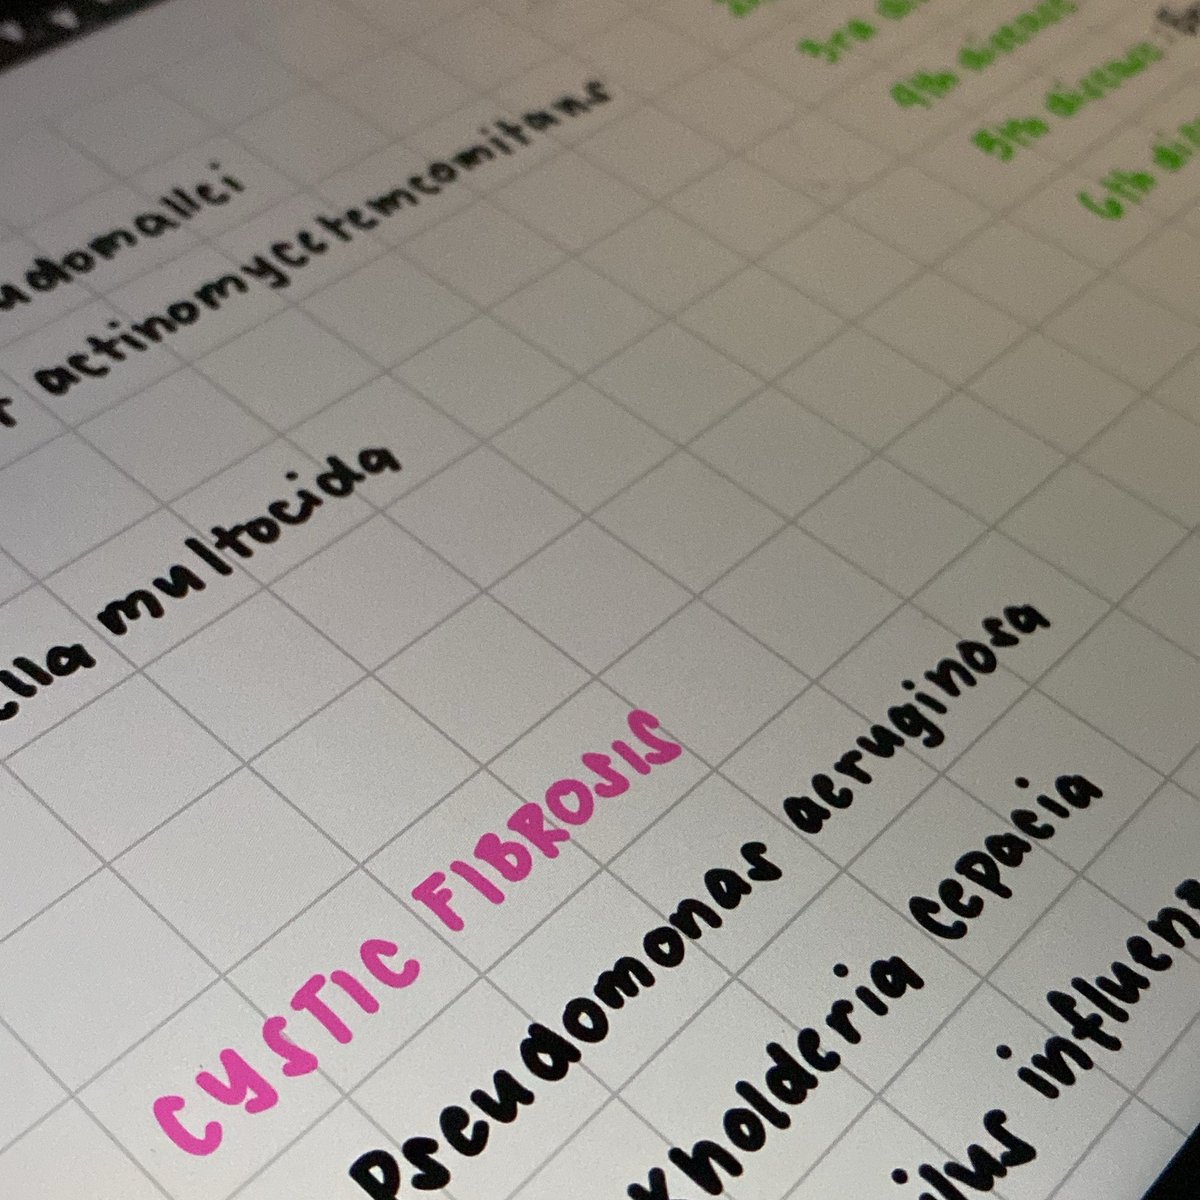 3rd
4th disease
5th disease:
6th
udomallei
r actinomycetemcomitans
ella multocida
CYSTIC FIBROSIS
Pseudomonas aeruginosa
kholderia cepacia
ilus influenz